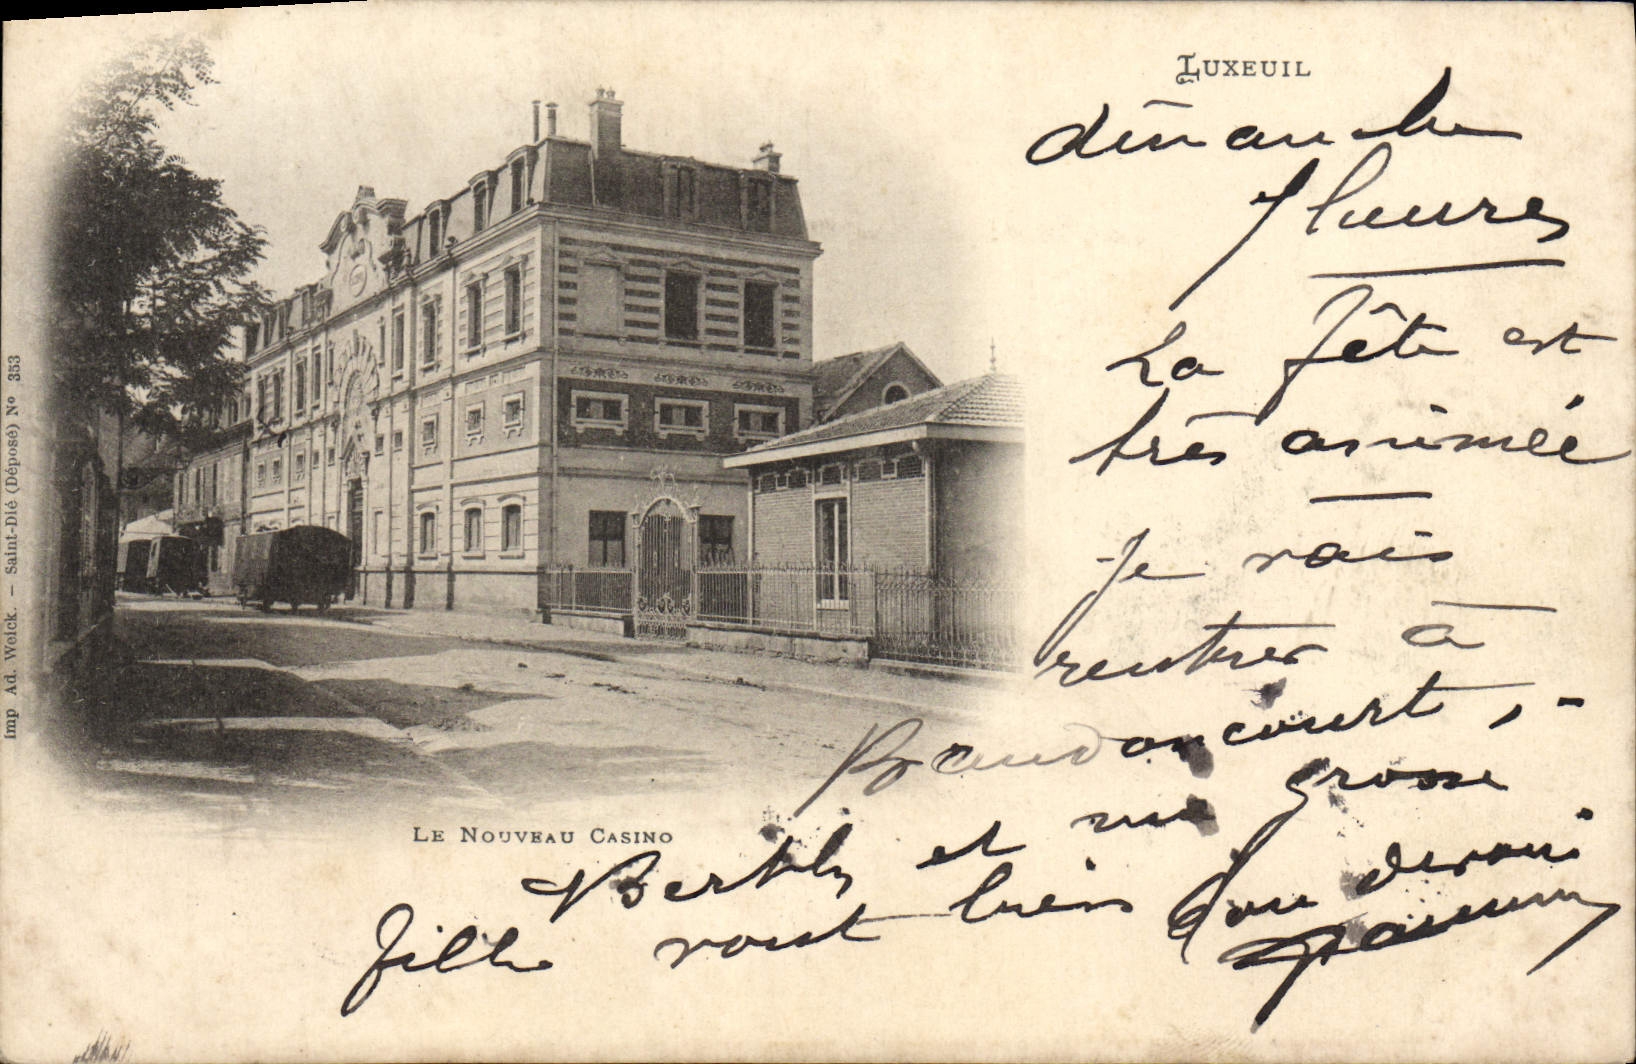 LUXEUIL
dimanche
7 heures
La fête est
très animée
Je vais
rentrer à
Baudoncourt,
Berthe et ma grosse
fille vont bien
LE NOUVEAU CASINO
Imp Ad. Weick. — Saint-Dié (Déposé) Nº 353